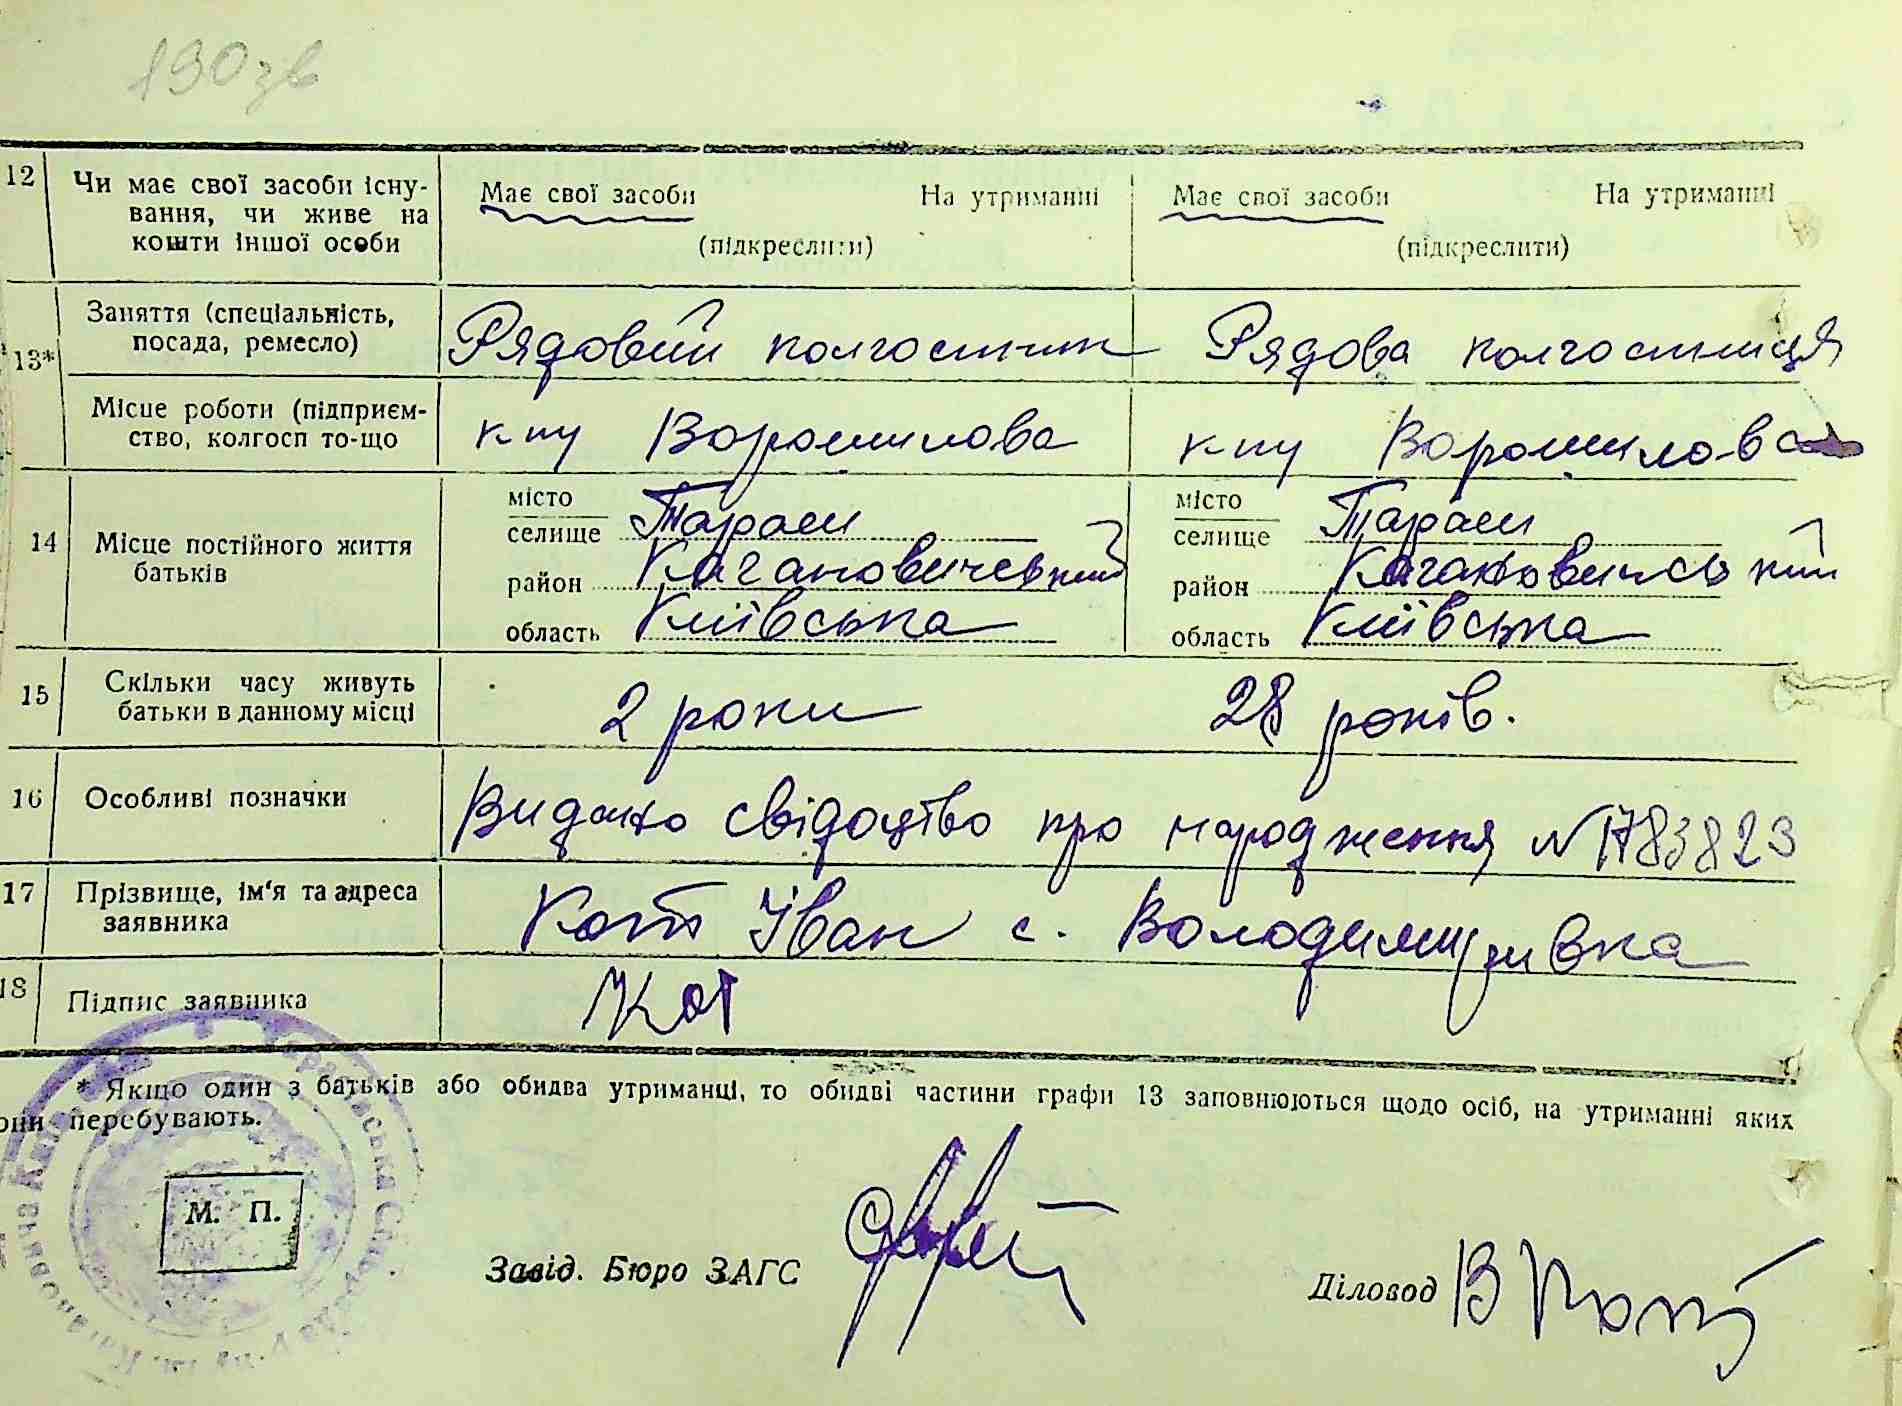 190 зв
12 Чи має свої засоби існу-
вання, чи живе на
кошти іншої особи
Має свої засоби На утриманні
(підкреслити)
Має свої засоби На утриманні
(підкреслити)
13* Заняття (спеціальність,
посада, ремесло)
Рядовий колгоспник
Рядова колгоспниця
Місце роботи (підприєм-
ство, колгосп то-що
к-пу Ворошилова
к-пу Ворошилова
14 Місце постійного життя
батьків
місто
селище Тараси
район Кагановичський
область Київська
місто
селище Тараси
район Кагановичський
область Київська
15 Скільки часу живуть
батьки в данному місці
2 роки
28 років.
16 Особливі позначки
Видано свідоцтво про народження № 783823
17 Прізвище, ім'я та адреса
заявника
Кот Іван с. Володимирівка
18 Підпис заявника
Кот
* Якщо один з батьків або обидва утриманці, то обидві частини графи 13 заповнюються щодо осіб, на утриманні яких
они перебувають.
М. П.
Завід. Бюро ЗАГС
Діловод